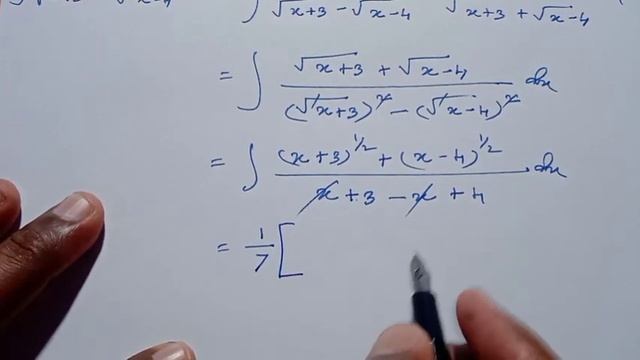 ∫ √x+3 − √x−4 √x+3 + √x−4
= ∫ √x+3 + √x−4 / (√x+3)² − (√x−4)² dx
= ∫ (x+3)^1/2 + (x−4)^1/2 / x+3−x+4 . dx
= 1/7 [